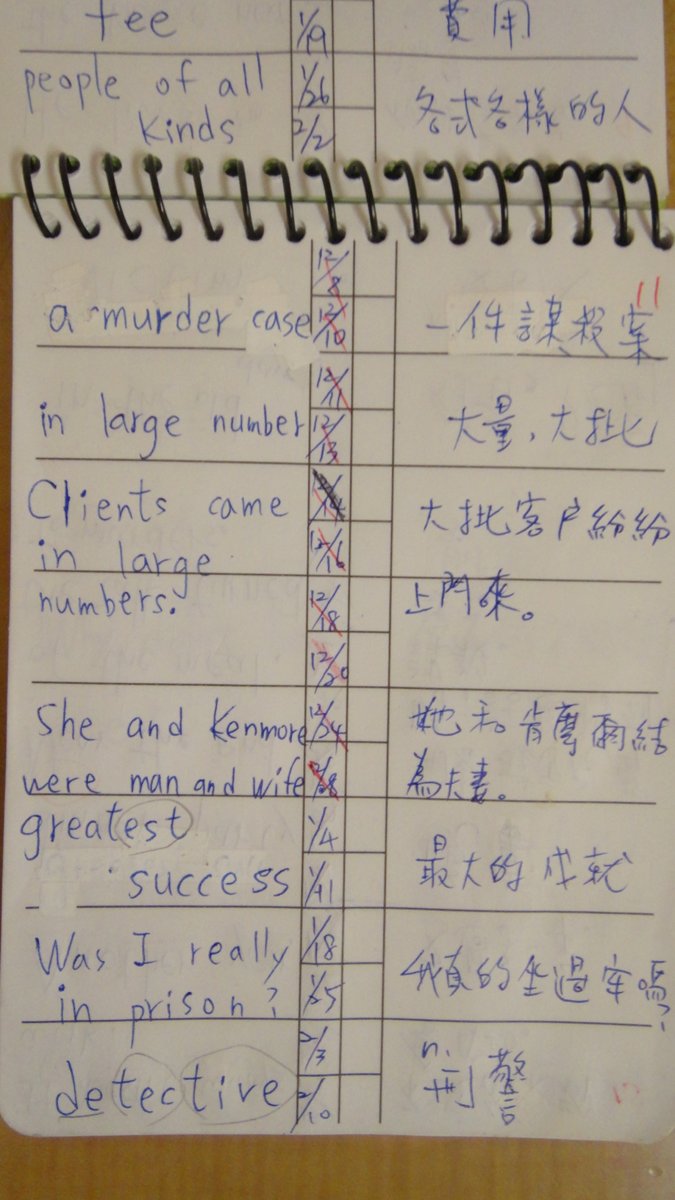 fee 1/19 費用
people of all 1/26 各式各樣的人
kinds 2/2
12/8
a murder case 12/10 一件謀殺案 11
12/11
in large number 12/13 大量,大批
Clients came 大批客戶紛紛
in large 12/16
numbers. 12/18 上門來。
12/20
She and Kenmore 12/24 她和肯摩爾結
were man and wife 12/28 為夫妻。
greatest 1/4
success 1/11 最大的成就
Was I really 1/18 我真的坐過牢嗎?
in prison? 1/25
2/3 n.
detective 2/10 刑警